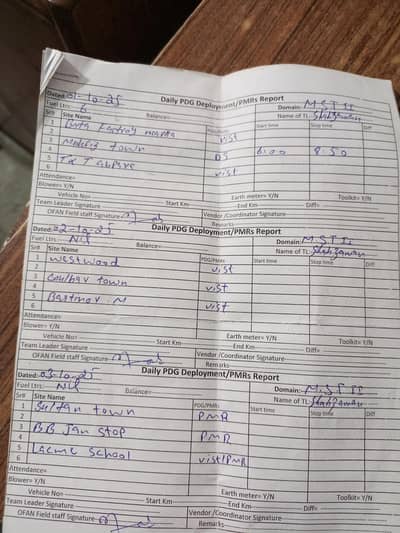 Daily PDG Deployment/PMRs Report
Dated: 01-10-25 Domain: MST II
Fuel Ltrs: 6 Balance= Name of TL: Shahzaman
Sr# Site Name PDG/PMRs Start time Stop time Diff
1 Bata Factory vist
2
3 town DS 6:00 8:50
4
5 vist
6
Attendance=
Blower= Y/N Earth meter= Y/N Toolkit= Y/N
Vehicle No= Start Km End Km Diff=
Team Leader Signature Vendor/Coordinator Signature
OFAN Field staff Signature Remarks
Daily PDG Deployment/PMRs Report
Dated: 02-10-25 Domain: MST II
Fuel Ltrs: Nil Balance= Name of TL: Shahzaman
Sr# Site Name PDG/PMRs Start time Stop time Diff
1 westwood vist
2
3 town vist
4
5 vist
6
Attendance=
Blower= Y/N Earth meter= Y/N Toolkit= Y/N
Vehicle No= Start Km End Km Diff=
Team Leader Signature Vendor /Coordinator Signature
OFAN Field staff Signature Remarks
Daily PDG Deployment/PMRs Report
Dated: 03-10-25 Domain: MST II
Fuel Ltrs: Nil Balance= Name of TL: Shahzaman
Sr# Site Name PDG/PMRs Start time Stop time Diff
1 Sultan town PMR
2
3 BB Jan stop PMR
4
5 Lacme School vist/PMR
6
Attendance=
Blower= Y/N Earth meter= Y/N Toolkit= Y/N
Vehicle No= Start Km End Km Diff=
Team Leader Signature Vendor /Coordinator Signature
OFAN Field staff Signature Remarks